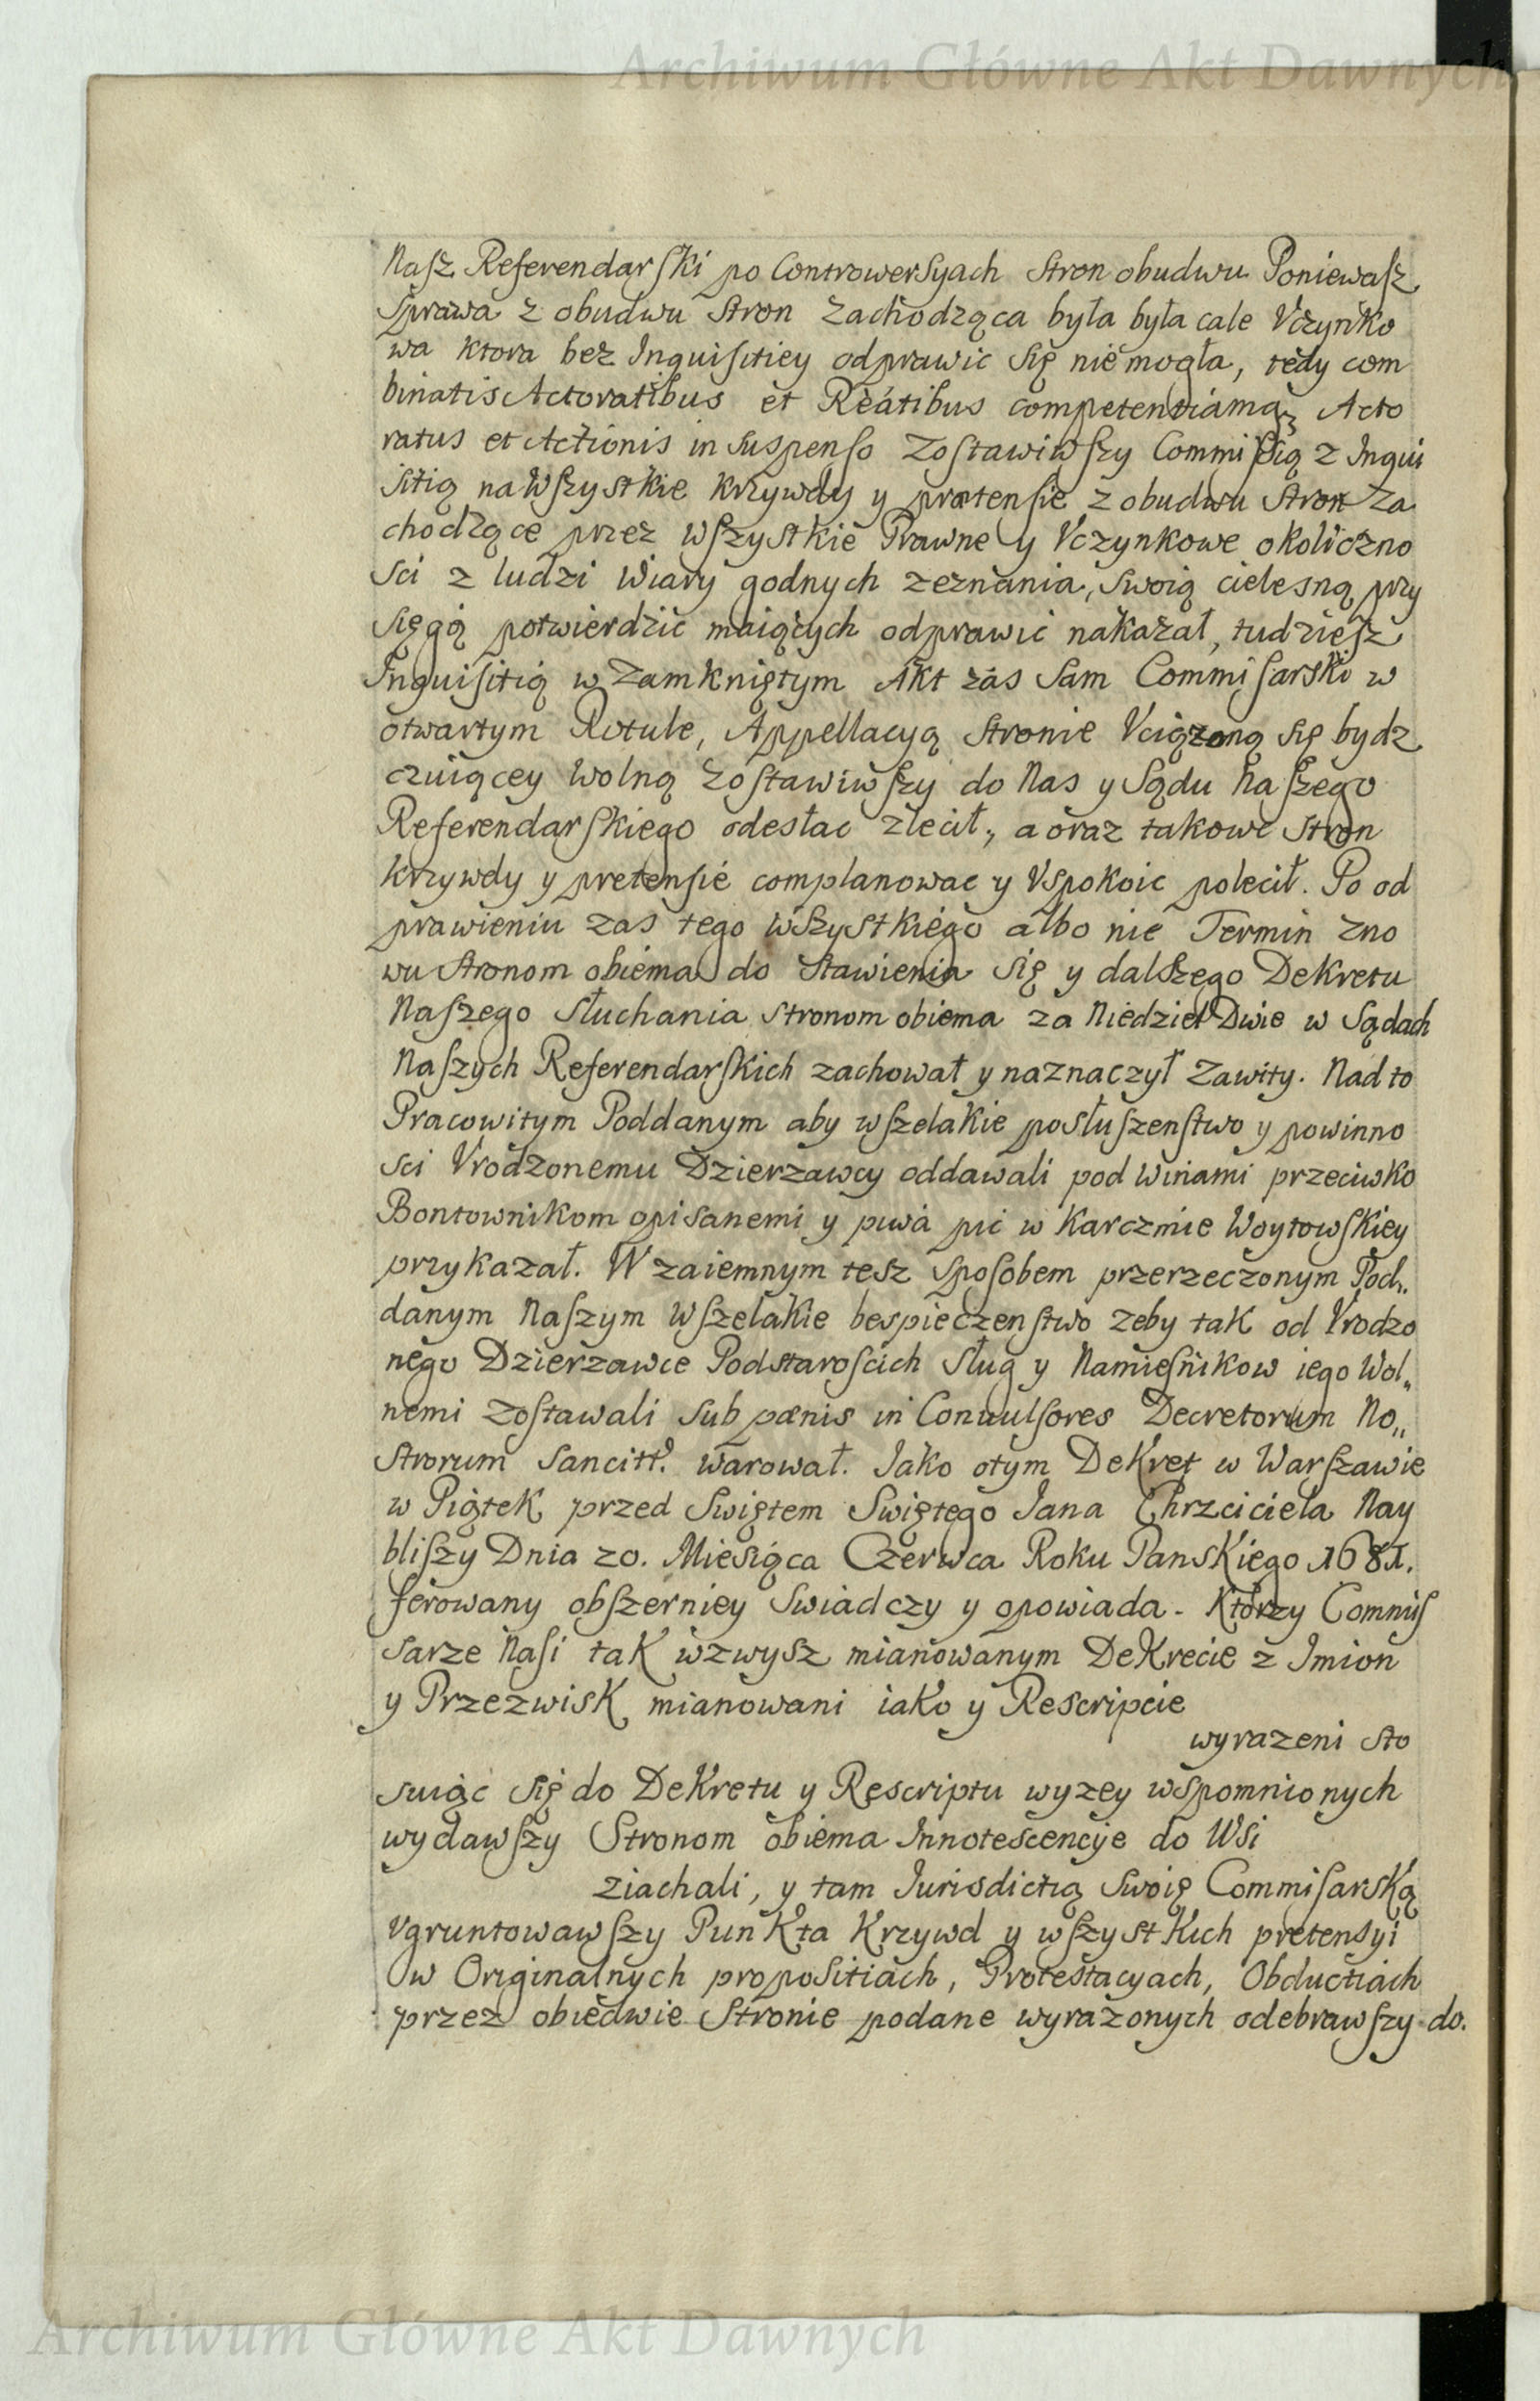 Archiwum Główne Akt Dawnych
Nasz Referendarski po Controwersyach Stron obudwu Poniewasz
Sprawa z obudwu Stron zachodząca była była cale Vczynko
wa ktora bez Inquisitiey odprawic się nie mogła, tedy com
binatis Actoratibus et Reatibus competentiamq3 Acto
ratus et Actionis in suspenso Zostawiwszy Commissią z Inqui
sitią na Wszystkie krzywdy y praetensie z obudwu Stron Za
chodzące przez Wszystkie Prawne y Vczynkowe okoliczno
sci z ludzi Wiary godnych zeznania, swoią cielesną przy
sięgą potwierdzic maiących odprawic nakazał, tudziesz
Inquisitią w Zamkniętym Akt zas Sam Commisarski w
otwartym Rotule, Appellacyą Stronie Vciązoną się bydz
czuiącey Wolną Zostawiwszy do Nas y Sądu Naszego
Referendarskiego odesłac zlecił, a oraz takowe Stron
krzywdy y pretensie complanowac y Vspokoic polecił. Po od
prawieniu zas tego wszystkiego albo nie Termin zno
wu Stronom obiema do Stawienia się y dalszego Dekretu
Naszego słuchania Stronom obiema za Niedziel Dwie w Sądach
Naszych Referendarskich zachował y naznaczył Zawity. Nad to
Pracowitym Poddanym aby wszelakie posłuszenstwo y powinno
sci Vrodzonemu Dzierzawcy oddawali pod Winami przeciwko
Bontownikom opisanemi y piwa pic w Karczmie Woytowskiey
przykazał. W zaiemnym tesz sposobem przerzeczonym Pod„
danym Naszym Wszelakie bespieczenstwo zeby tak od Vrodzo
nego Dzierzawce Podstaroscich Sług y Namiesnikow iego Wol„
nemi zostawali sub paenis in Conuulsores Decretorum No„
strorum Sancitt. warował. Jako otym Dekret w Warszawie
w Piątek przed Swiętem Swiętego Jana Chrzciciela Nay
bliszy Dnia 20. Miesiąca Czerwca Roku Panskiego 1681.
ferowany obszerniey Swiadczy y opowiada. Ktorzy Commis
sarze Nasi tak wzwysz mianowanym Dekrecie z Imion
y Przezwisk mianowani iako y Rescripcie
wyrazeni Sto
suiąc się do Dekretu y Rescriptu wyzey wspomnionych
wydawszy Stronom obiema Innotescencye do Wsi
ziachali, y tam Jurisdictią Swoię Commisarską
Vgruntowawszy Punkta Krzywd y wszystkich pretensyi
w Originalnych propositiach, Protestacyach, Obductiach
przez obiedwie Stronie podane wyrazonych odebrawszy do.
Archiwum Główne Akt Dawnych